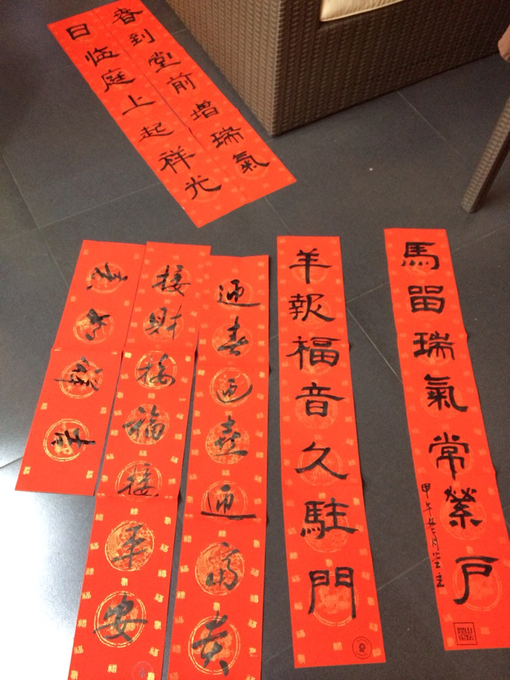 春到堂前增瑞氣
日临庭上起祥光
馬留瑞氣常縈戶
甲午
羊報福音久駐門
迎春迎喜迎富貴
接財接福接平安